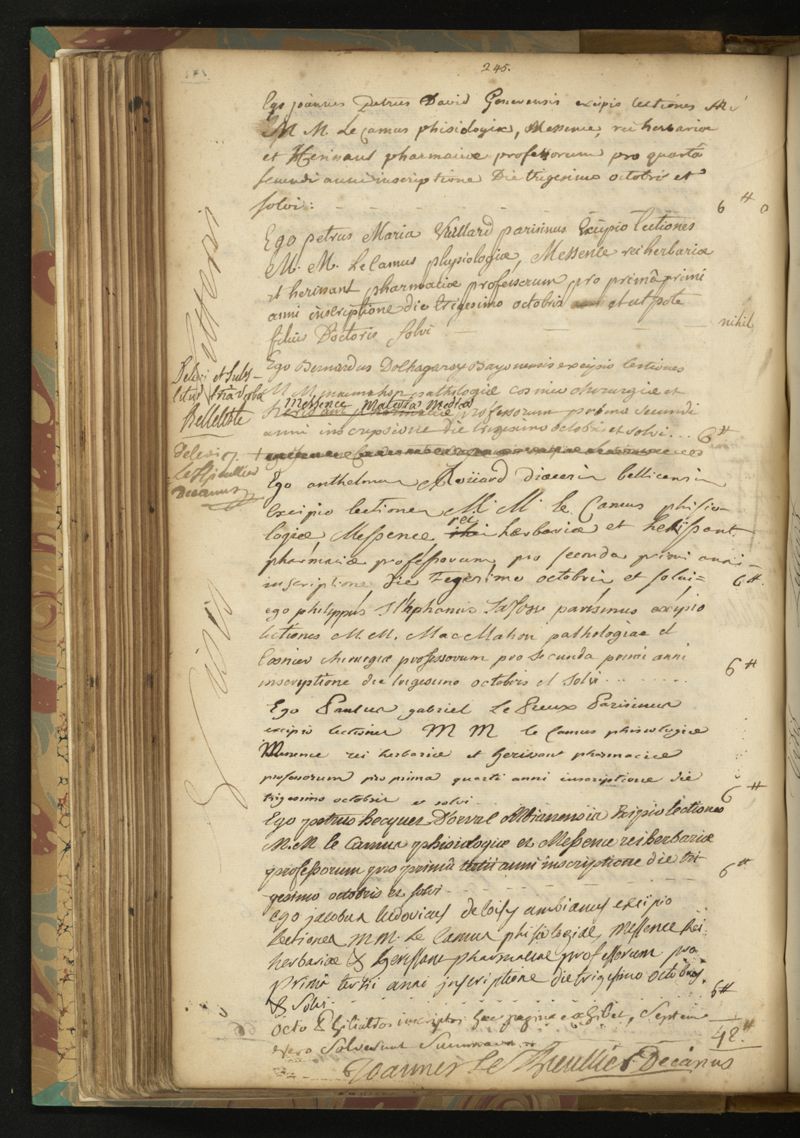 245.
Ego joannes Petrus David Genevensis excipio lectiones
M M Le Camus phisiologiæ, Messence, rei herbariæ
et Herissant pharmaciæ professorum pro quartâ
secundi anni inscriptione Die trigesimo octobris et
solvi: 6 ₶ 0
Ego petrus Maria Vuillard parisinus Excipio lectiones
M. M. Le Camus physiologiæ, Messence rei herbariæ
et herissant pharmaciæ professorum pro primâ primi
anni inscriptione die trigesimo octobris et utpote
filius Doctoris solvi nihil
Ego Bernardus Dolhagaray Bayonensis excipio lectiones
M M macmahon pathologiæ cosnier chirurgiæ et
Messence Materia Medica
professorum prima secundi
anni inscriptione die trigesimo octobris et solvi... 6₶
Belletête
Decanus
Ego anthelmus Roüard diœcesis bellicensis
Excipio lectiones M. M. le Camus phisio-
logiæ Messence rei herbariæ et herissant
pharmaciæ professorum, pro secunda primi anni
inscriptione die tregesimo octobris et solvi= 6₶.
ego philippus Stephanus parisinus excipio
lectiones M. M. MacMahon pathologiae et
Cosnier chirurgiæ professorum pro secunda primi anni
inscriptione die trigesimo octobris et solvi 6₶
Ego Paulus gabriel Le Preux Parisinus
excipio lectiones M M le Camus phisiologiæ
Messence rei herbariæ et herissant pharmaciæ
professorum pro prima quarti anni inscriptione die
trigesimo octobris et solvi 6₶
Ego petrus hecquet D'orval Excipio lectiones
M. M le Camus phisiologiæ et Messence rei herbariæ
professorum pro primâ tertii anni inscriptione die tri
gesimo octobris et solvi 6₶
Ego jacobus ludovicus ambianus excipio
lectiones MM. Le Camus phisiologiæ, Messence Rei
herbariæ & herissant pharmaciæ professorum pro
prima tertii anni inscriptione die trigesimo octobris
& solvi 6₶
octo Philiatros inscriptos haec pagina exhibet, Septem
vero solverunt Summam 48.₶
Joannes Le Thieullier Decanus